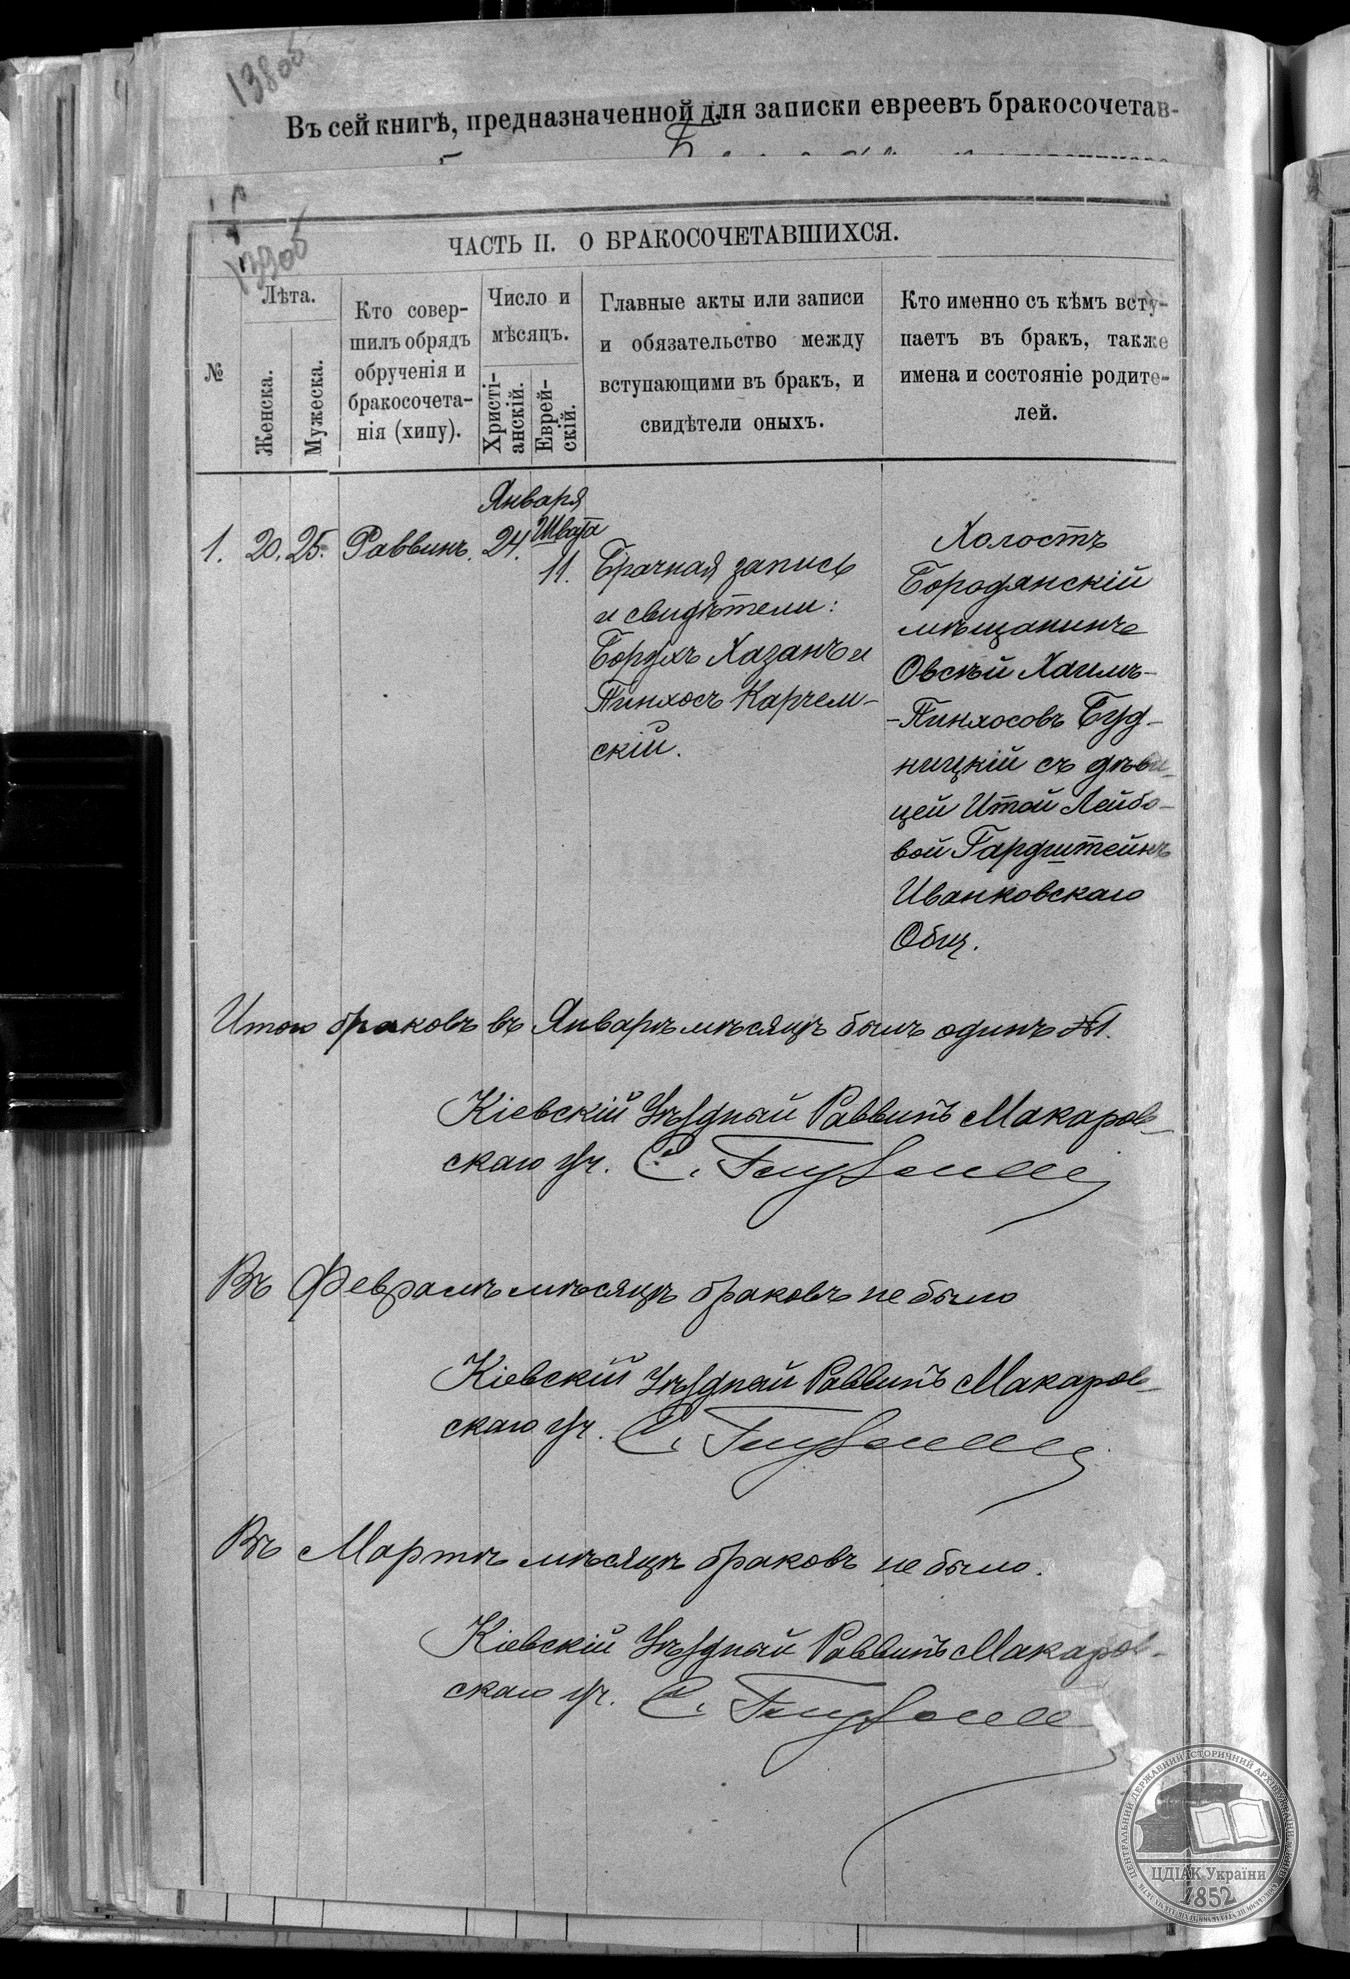 138об
Въ сей книгѣ, предназначенной для записки евреевъ бракосочетав-
139об
ЧАСТЬ II. О БРАКОСОЧЕТАВШИХСЯ.
№
Лѣта.
Женска.
Мужеска.
Кто совер-
шилъ обрядъ
обрученія и
бракосочета-
нія (хипу).
Число и
мѣсяцъ.
Христі-
анскій.
Еврей-
скій.
Главные акты или записи
и обязательство между
вступающими въ бракъ, и
свидѣтели оныхъ.
Кто именно съ кѣмъ всту-
паетъ въ бракъ, также
имена и состояніе родите-
лей.
Января
1. 20. 25. Раввинъ. 24.
Швата
11.
Брачная запись
и свидѣтели:
Борухъ Хазанъ и
Пинхосъ Карчем-
скій.
Холостъ
Бородянскій
мѣщанинъ
Овсѣй Хаимъ-
-Пинхосовъ Буд-
ницкій съ дѣви-
цей Итой Лейбо-
вой Гардштейнъ
Иванковскаго
Общ.
Итого браковъ въ Январѣ мѣсяцѣ былъ одинъ №1.
Кіевскій Уѣздный Раввинъ Макаров-
скаго уч. С.
Въ Февралѣ мѣсяцѣ браковъ не было
Кіевскій Уѣздный Раввинъ Макаров-
скаго уч. С.
Въ Мартѣ мѣсяцѣ браковъ не было.
Кіевскій Уѣздный Раввинъ Макаров-
скаго уч. С.
ЦЕНТРАЛЬНИЙ ДЕРЖАВНИЙ ІСТОРИЧНИЙ АРХІВ УКРАЇНИ
ЦДІАК України
1852